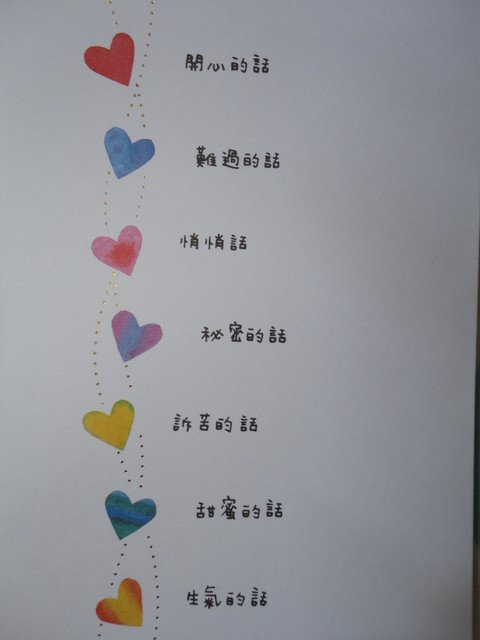 開心的話
難過的話
悄悄話
秘密的話
訴苦的話
甜蜜的話
生氣的話